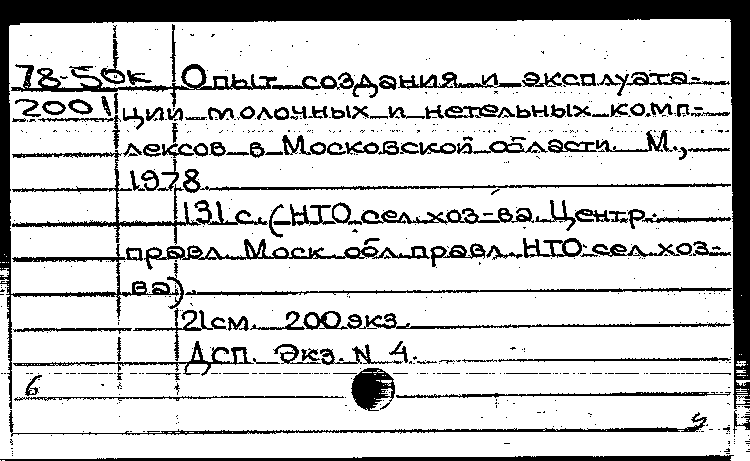 78-50к Опыт создания и эксплуата-
2001 ции молочных и нетельных комп-
лексов в Московской области. М.,
1978.
131 с. (НТО сел. хоз-ва. Центр.
правл. Моск. обл. правл. НТО сел. хоз-
ва).
21см. 200 экз.
ДСП. Экз. N 4.
б
5